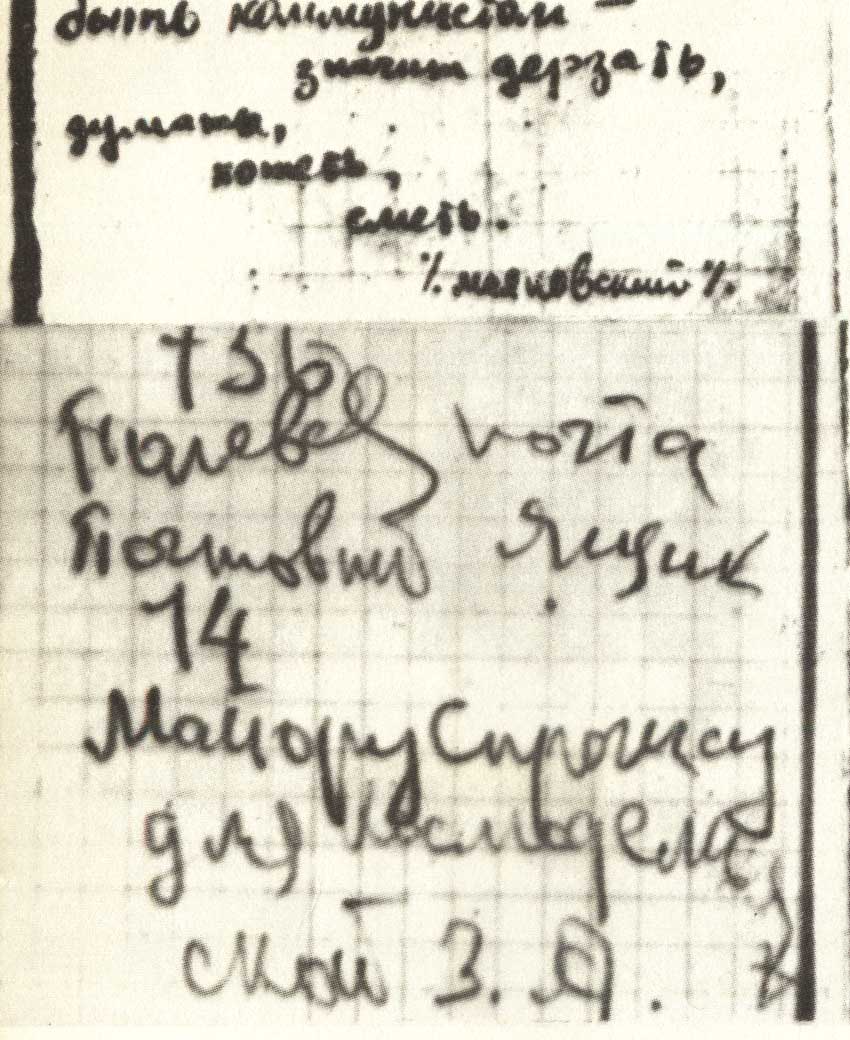 быть коммунистом —
значит дерзать,
думать,
хотеть,
сметь.
% маяковский %.
736
Полевая почта
Почтовый ящик
14
Майору Спрогису
для космодемь
ской З. А.